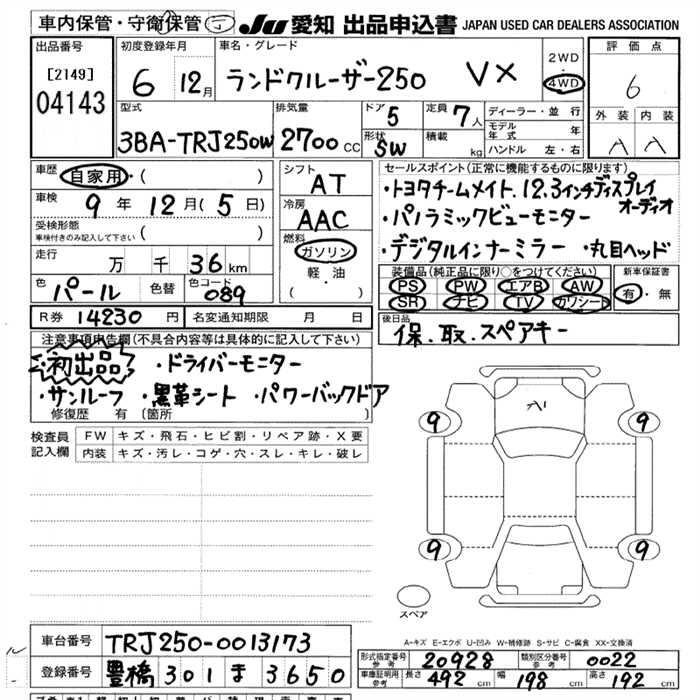 車内保管・守衛保管 JU 愛知 出品申込書 JAPAN USED CAR DEALERS ASSOCIATION
出品番号
[2149]
04143
初度登録年月
6 12月
車名・グレード
ランドクルーザー250 VX
2WD
・
4WD
評価点
6
外装 内装
A A
型式
3BA-TRJ250W
排気量
2700 CC
ドア 5
形状 SW
定員 7人
積載 kg
ディーラー・並行
モデル年式 年
ハンドル 左・右
車歴 自家用・( )
車検 9年 12月(5日)
受検形態
車検付きのみ記入して下さい ( )
走行 万 千 36 km
色 パール 色替 色コード 089
R券 14230 円 名変通知期限 月 日
シフト AT
冷房 AAC
燃料
ガソリン
軽・油
( )
セールスポイント(正常に機能するものに限ります)
・トヨタチームメイト.12.3インチディスプレイオーディオ
・パノラミックビューモニター
・デジタルインナーミラー ・丸目ヘッド
装備品(純正品に限り○をつけてください)
PS PW エアB AW
SR ナビ TV カワシート
新車保証書
有・無
後日品
保.取.スペアキー
注意事項申告欄(不具合内容等は具体的に記入して下さい)
・初出品 ・ドライバーモニター
・サンルーフ ・黒革シート ・パワーバックドア
修復歴 有 (箇所 )
検査員記入欄
FW キズ・飛石・ヒビ割・リペア跡・X要
内装 キズ・汚レ・コゲ・穴・スレ・キレ・破レ
A1
9 9
9 9
スペア
A-キズ E-エクボ U-凹み W-補修跡 S-サビ C-腐食 XX-交換済
車台番号 TRJ250-0013173
登録番号 豊橋 301 ま 3650
形式指定番号 参考 20928 類別区分番号 参考 0022
車庫証明用 参考 長さ 492 cm 幅 198 cm 高さ 192 cm